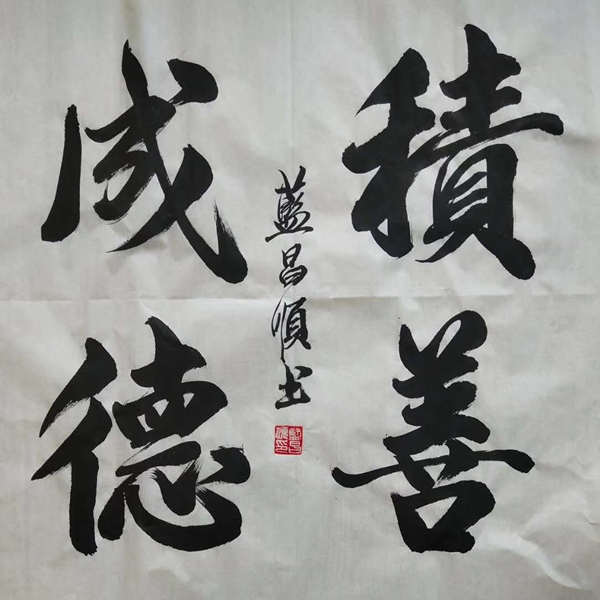 積善
成德
藍昌順书